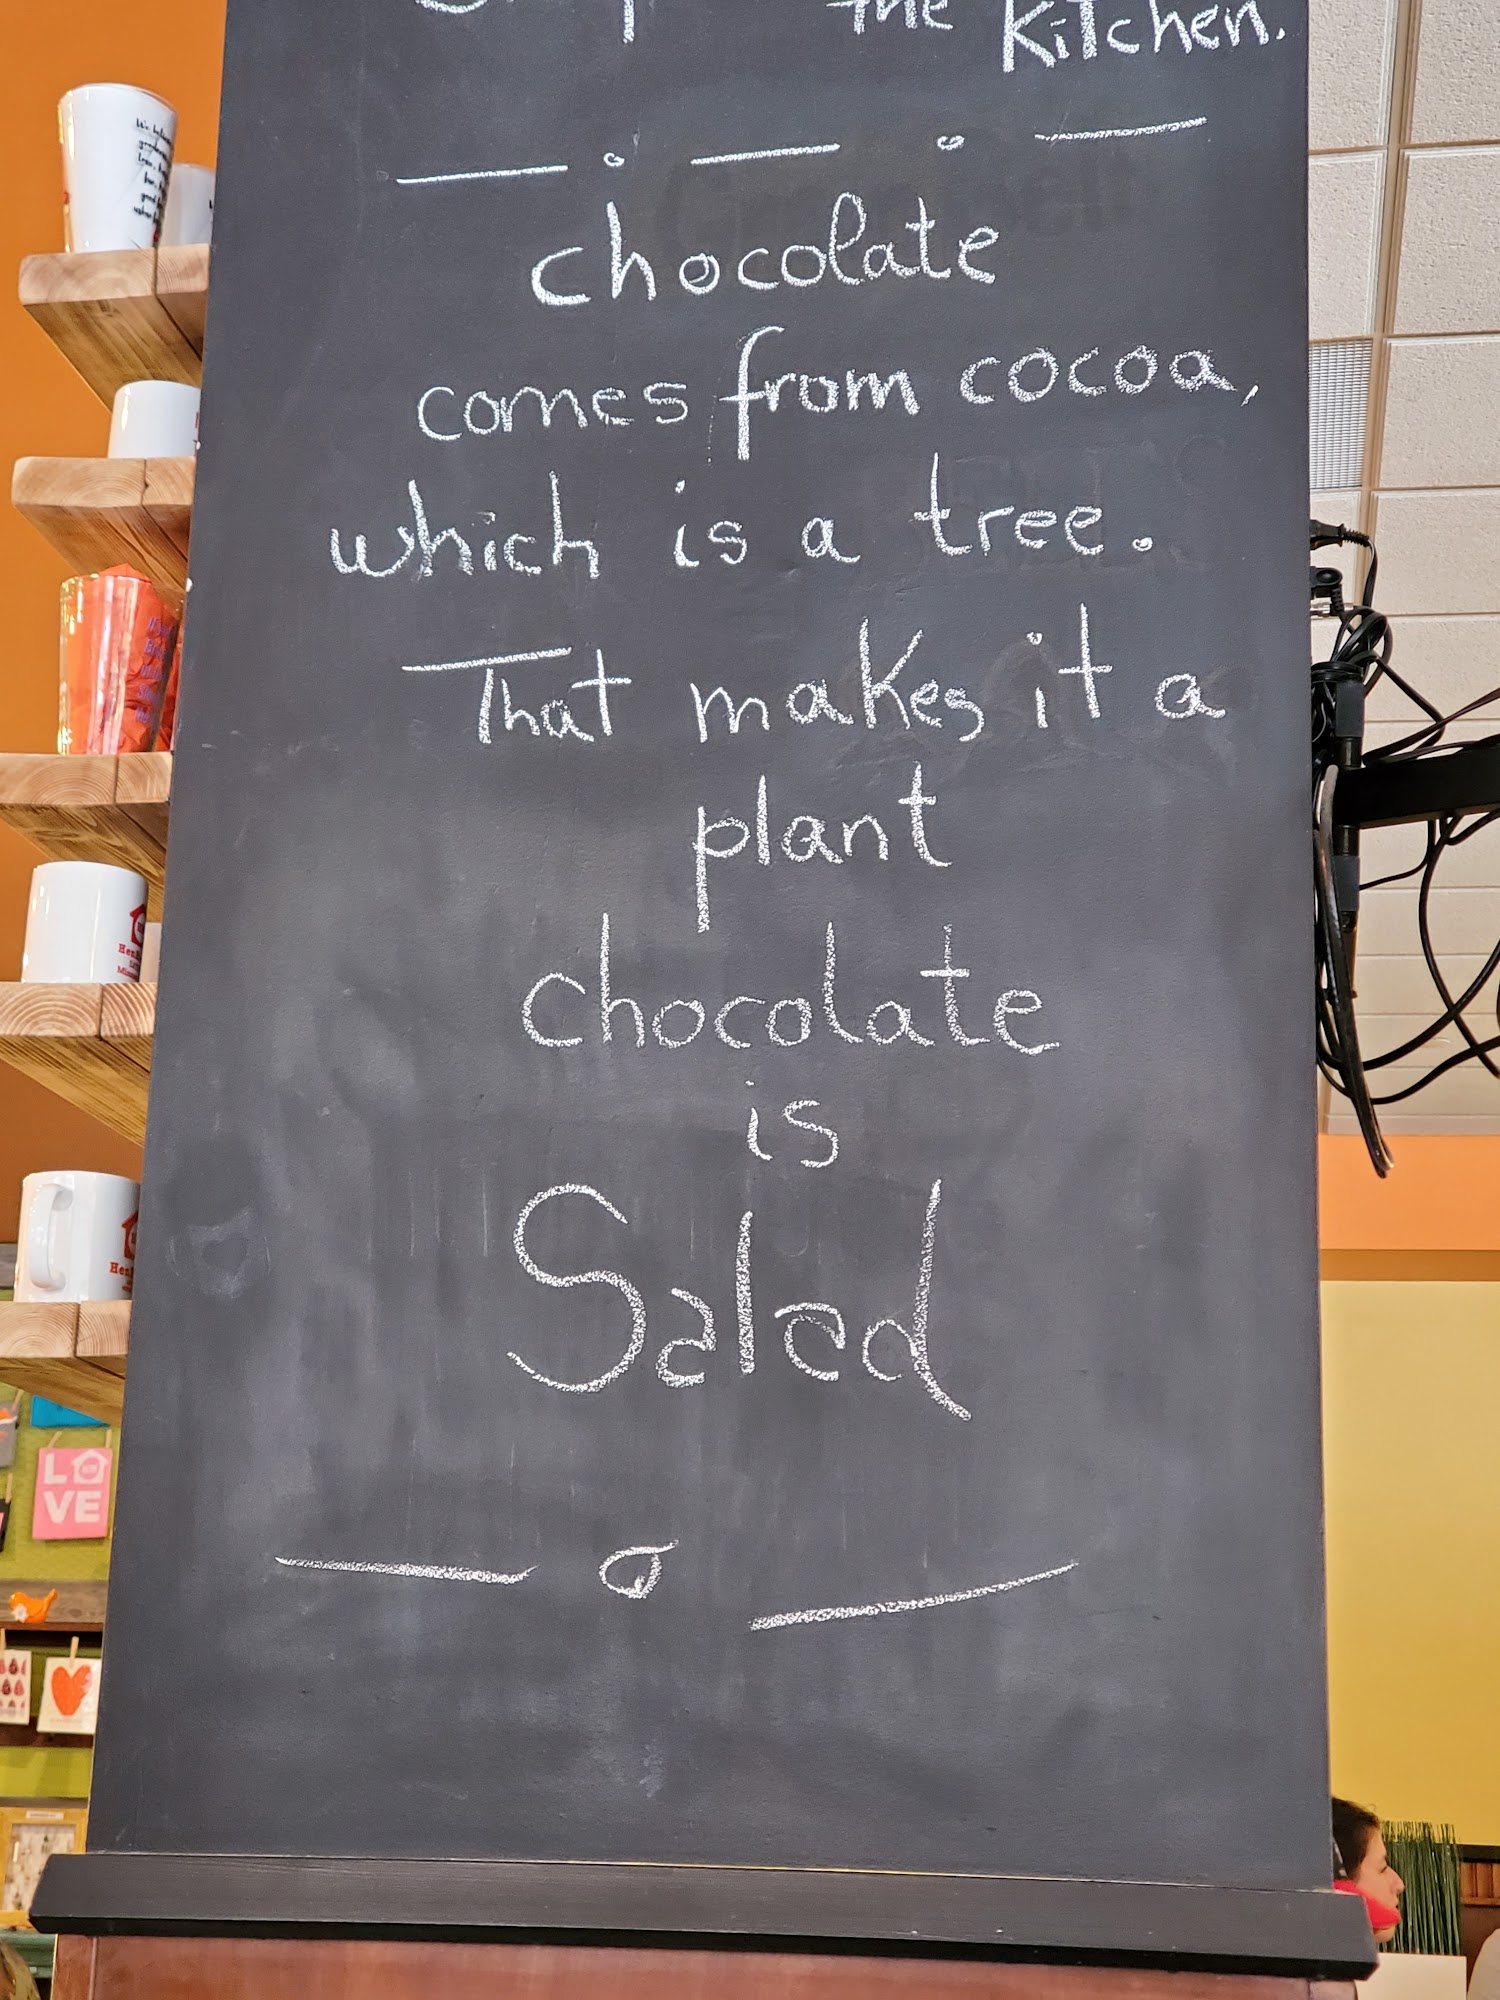 the Kitchen.
chocolate
comes from cocoa,
which is a tree.
That makes it a
plant
chocolate
is
Salad
LOVE